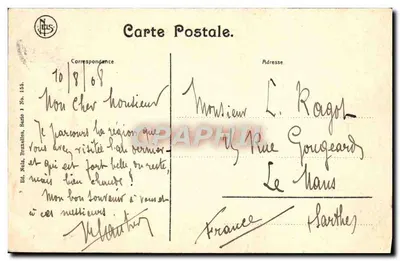 Carte Postale.
Correspondance
Adresse
10/8/08
Mon Cher Monsieur
Je parcours la région que
vous avez visitée l'an dernier
et qui est fort belle du reste,
mais bien chaude!
Mon bon souvenir à vous et
à ces messieurs.
Monsieur L. Ragot
Rue Gougeard
Le Mans
(Sarthe)
France
Ed. Nels, Bruxelles, Serie 1 No. 155.
CARTAPHILIE